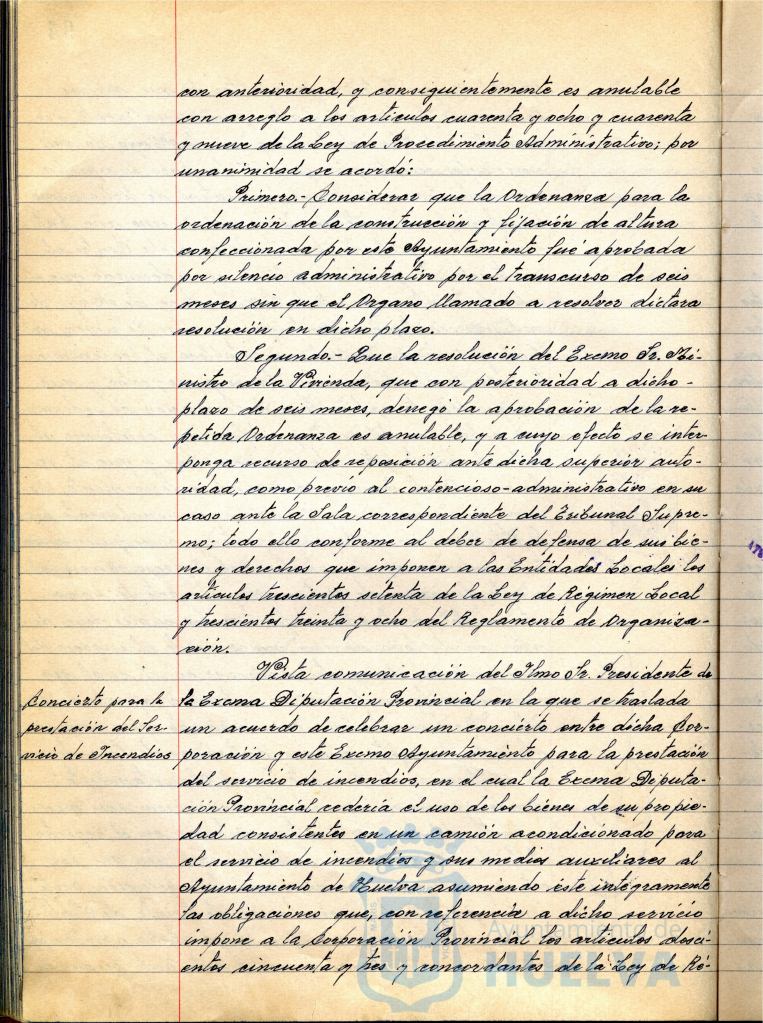 con anterioridad, y consiguientemente es anulable
con arreglo a los artículos cuarenta y ocho y cuarenta
y nueve de la Ley de Procedimiento Administrativo; por
unanimidad se acordó:
Primero.- Considerar que la Ordenanza para la
ordenación de la construcción y fijación de altura
confeccionada por este Ayuntamiento fué aprobada
por silencio administrativo por el transcurso de seis
meses sin que el Organo llamado a resolver dictara
resolución en dicho plazo.
Segundo.- Que la resolución del Excmo Sr. Mi-
nistro de la Vivienda, que con posterioridad a dicho-
plazo de seis meses, denegó la aprobación de la re-
petida Ordenanza es anulable, y a cuyo efecto se inter-
ponga recurso de reposición ante dicha superior auto-
ridad, como previo al contencioso-administrativo en su
caso ante la Sala correspondiente del Tribunal Supre-
mo; todo ello conforme al deber de defensa de sus bie-
nes y derechos que imponen a las Entidades Locales los
artículos trescientos setenta de la Ley de Régimen Local
y trescientos treinta y ocho del Reglamento de Organiza-
ción.
Vista comunicación del Ilmo Sr. Presidente de
Concierto para la
prestación del Ser-
vicio de Incendios
la Excma Diputación Provincial en la que se traslada
un acuerdo de celebrar un concierto entre dicha Cor-
poración y este Excmo Ayuntamiento para la prestación
del servicio de incendios, en el cual la Excma Diputa-
ción Provincial cedería el uso de los bienes de su propie-
dad consistentes en un camión acondicionado para
el servicio de incendios y sus medios auxiliares al
Ayuntamiento de Huelva asumiendo éste íntegramente
las obligaciones que, con referencia a dicho servicio
impone a la Corporación Provincial los artículos dosci-
entos cincuenta y tres y concordantes de la Ley de Ré-
Ayuntamiento de
HUELVA